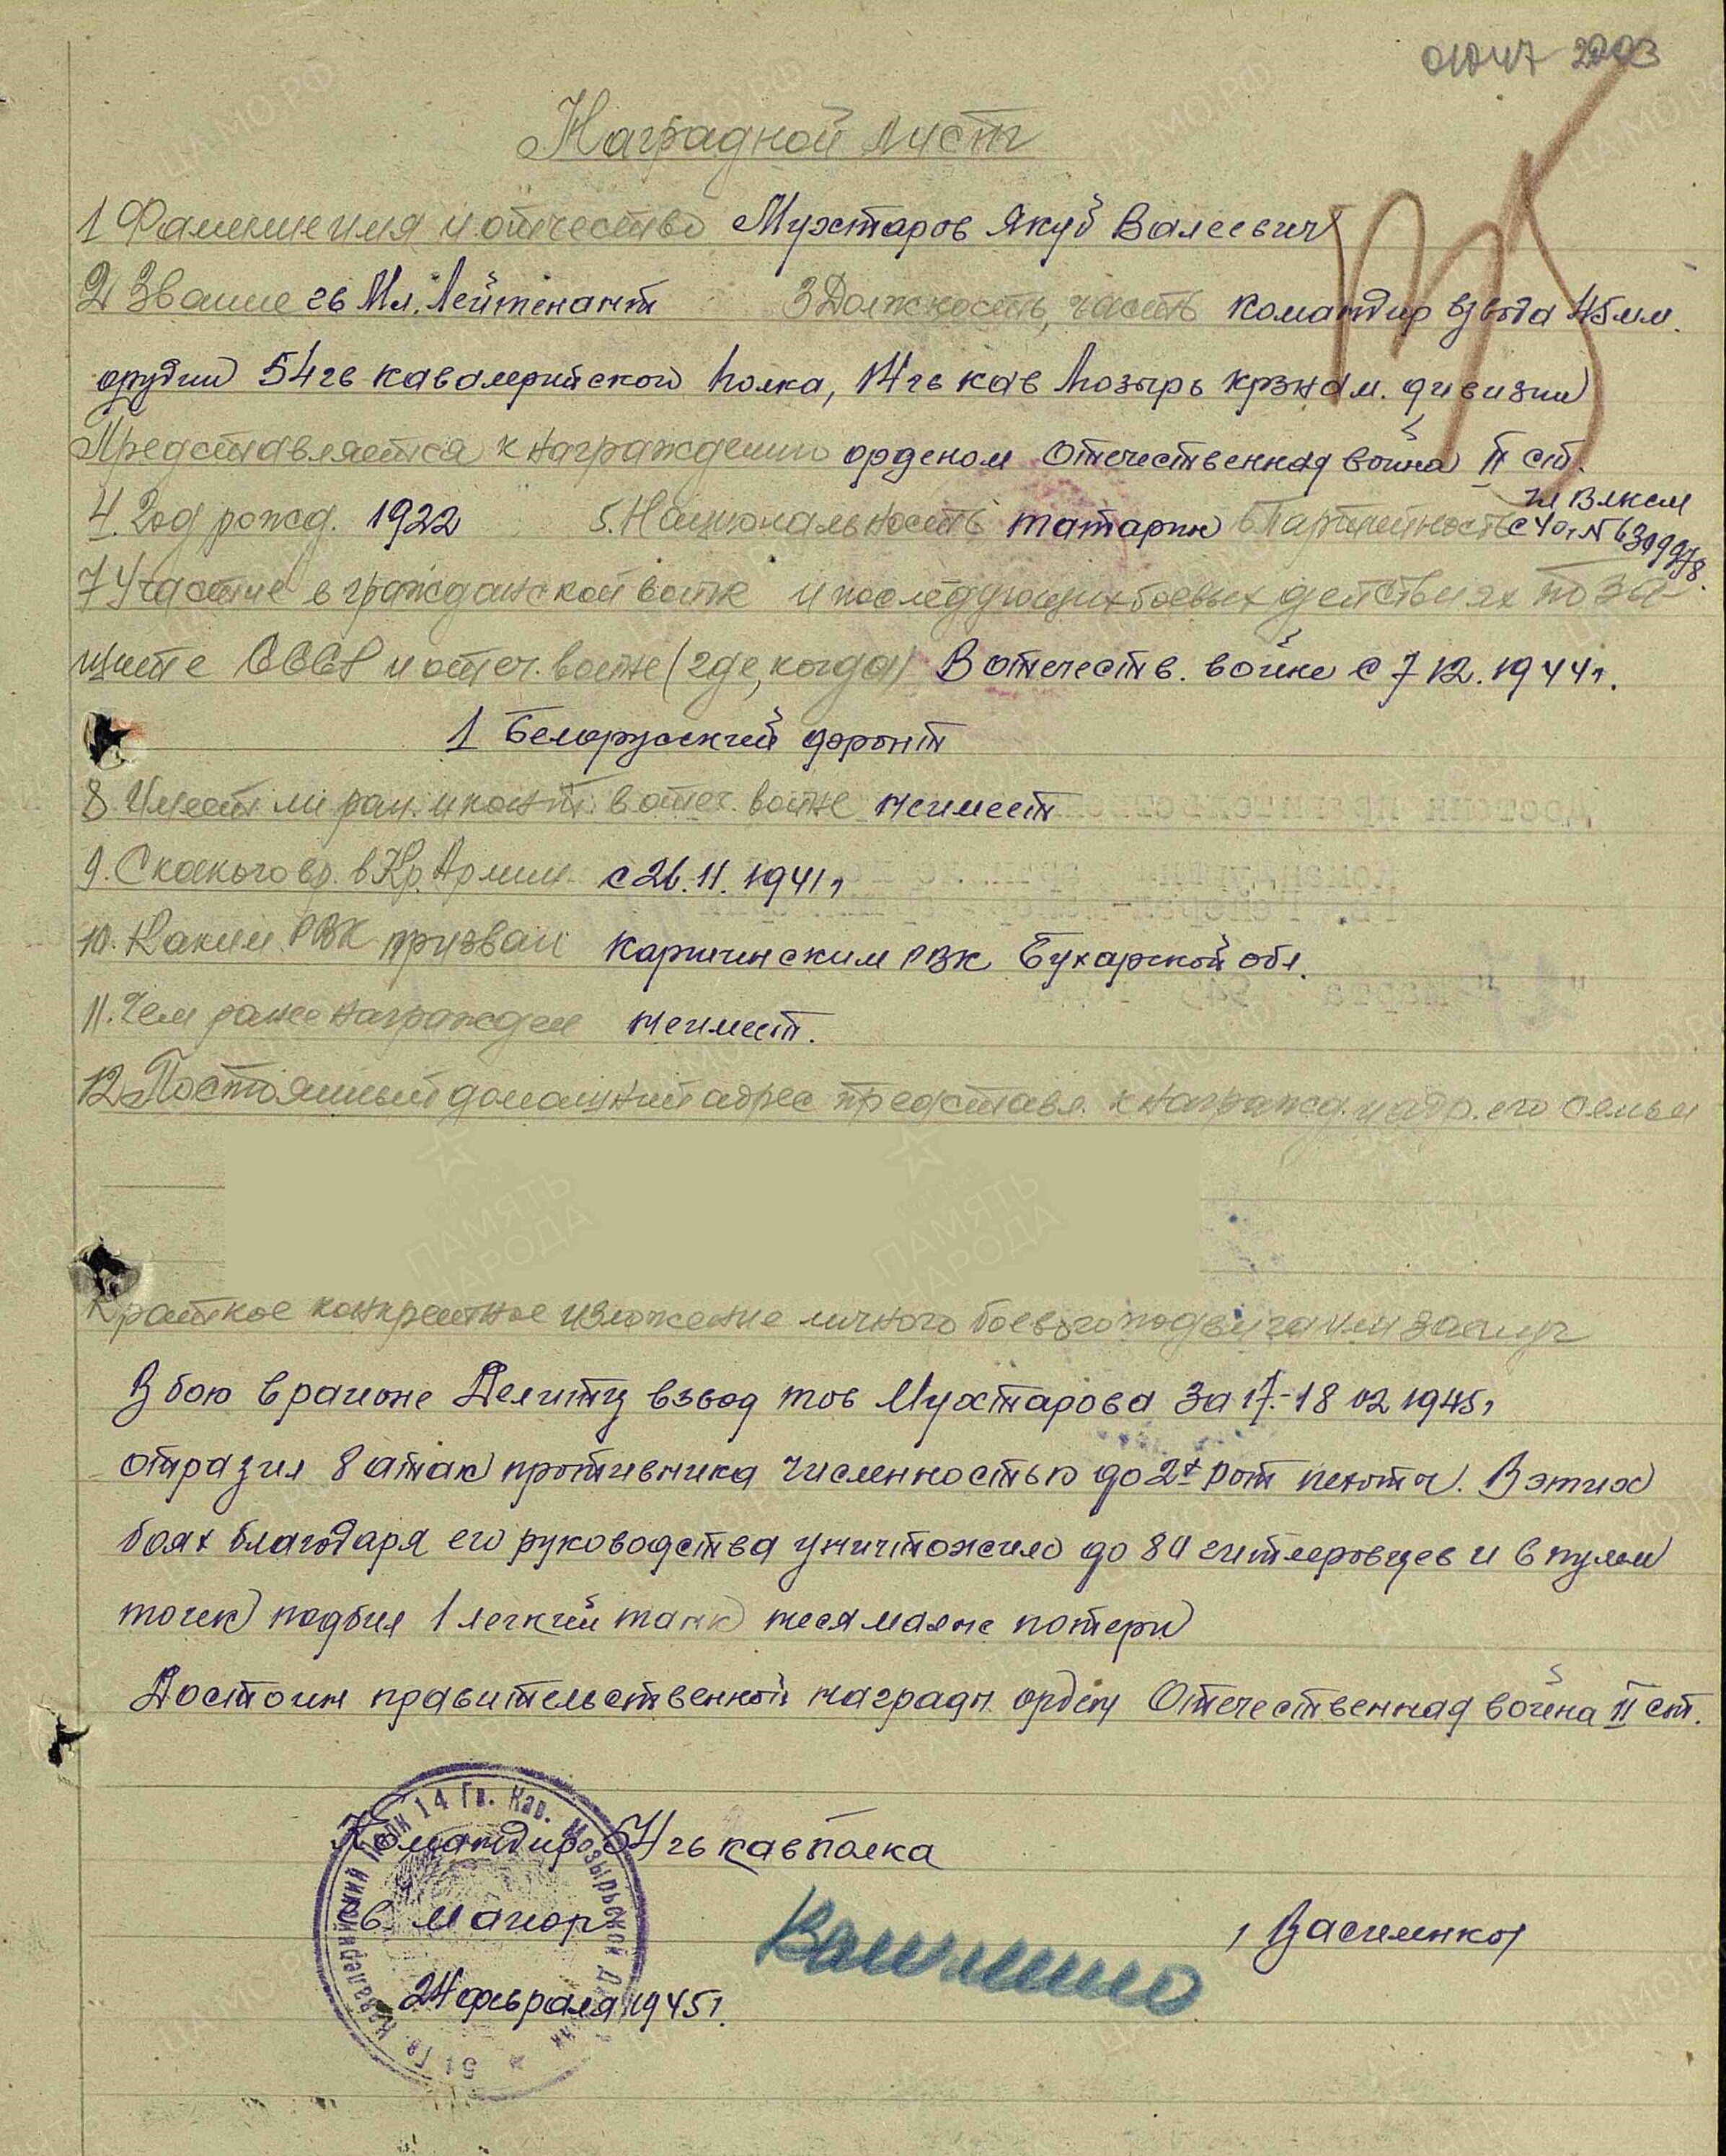 Наградной лист
1 Фамилия имя и отчество Мухтаров Якуб Валеевич
2 Звание гв Мл. Лейтенант 3 Должность, часть командир взвода 45 мм.
орудий 54 гв кавалерийского полка, 14 гв кав Мозырь крзнам. дивизии
Представляется к награждению орденом Отечественная война II ст.
4. Год рожд. 1922 5. Национальность татарин 6 Партийность чл Влксм
с 40г N 6309978.
7 Участие в гражданской войне и последующих боевых действиях по за-
щите СССР и отеч. войне (где, когда) В отечеств. войне с 7 12. 1944 г.
1 Белорусский фронт
8. Имеет ли ран. и конт. в отеч. войне не имеет
9. С какого вр. в Кр. Армии с 26. 11. 1941 г
10. Каким РВК призван Каршинским РВК Бухарской обл.
11. Чем ранее награжден не имеет.
12 Постоянный домашний адрес представл. к награжд. и адр. его семьи
Краткое конкретное изложение личного боевого подвига или заслуг
В бою в районе Делитц взвод тов Мухтарова за 17.-18 02 1945 г
отразил 8 атак противника численностью до 2х рот пехоты. В этих
боях благодаря его руководства уничтожило до 80 гитлеровцев и 6 пулем
точек подбил 1 легкий танк неся малые потери
Достоин правительственной награды орден Отечественная война II ст.
Командир 54 гв кавполка
гв. майор Василенко
24 февраля 1945 г.
54 Гв. Кавалерийский Полк 14 Гв. Кав. Мозырьской Дивизии
ПАМЯТЬ НАРОДА
ЦАМО.РФ